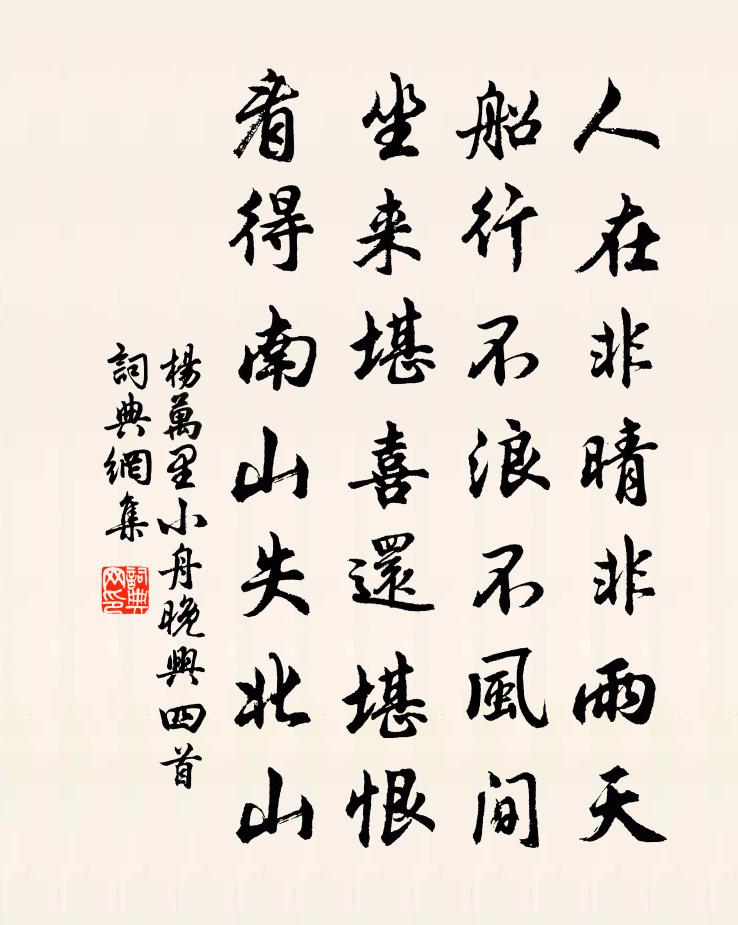 人在非晴非雨天
船行不浪不風間
坐来堪喜還堪恨
看得南山失北山
楊萬里小舟晚興四首
詞典網集
詞典網印